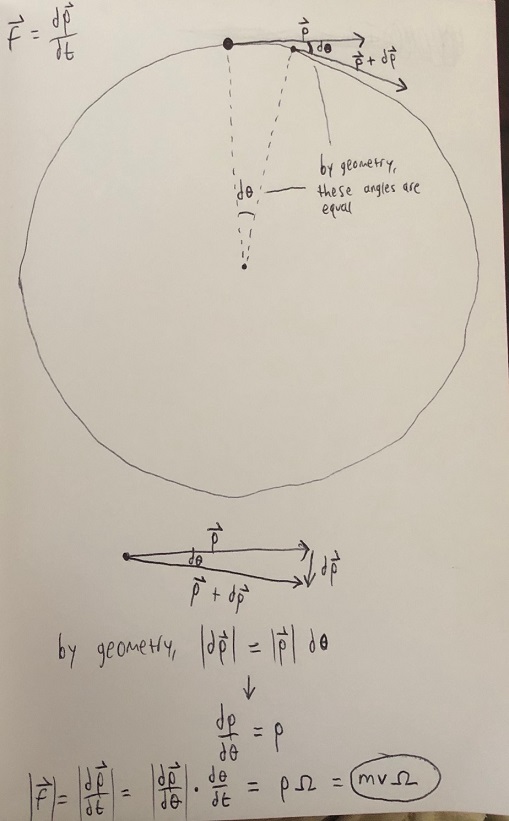 f⃗ = dp⃗/dt
p⃗
dθ
p⃗ + dp⃗
by geometry,
these angles are
equal
dθ
p⃗
dθ
dp⃗
p⃗ + dp⃗
by geometry, |dp⃗| = |p⃗| dθ
↓
dp/dθ = p
|f⃗| = |dp⃗/dt| = |dp⃗/dθ| · dθ/dt = pΩ = mvΩ